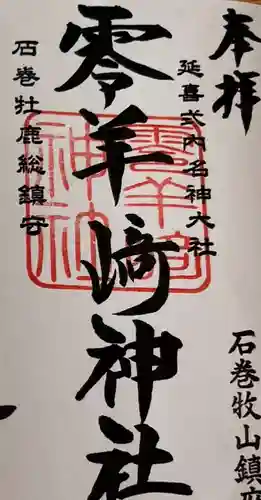 奉拝
延喜式内名神大社
零羊﨑神社
石巻牡鹿総鎮守
零羊﨑神社
石巻牧山鎮座